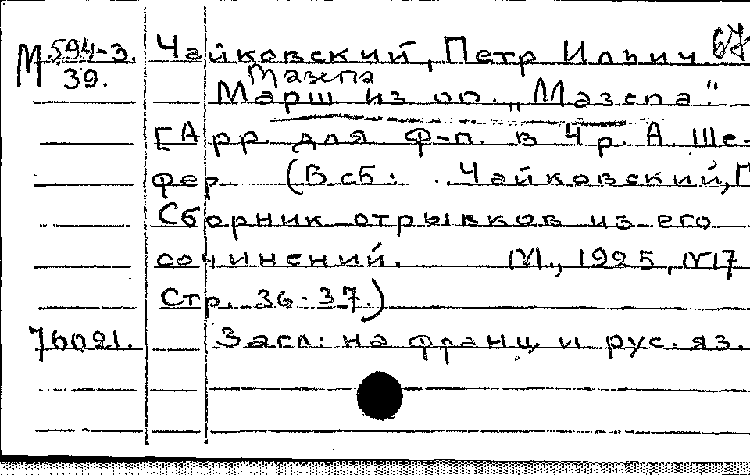 М 594-3. Чайковский, Петр Ильич 67
39. Мазепа
Марш из оп. „Мазепа"
[Арр. для ф-п. в 4 р. А. Ше-
фер (В сб: Чайковский, П
Сборник отрывков из его
сочинений. М., 1925, №17
Стр. 36-37.)
76021. Загл. на франц и рус. яз.